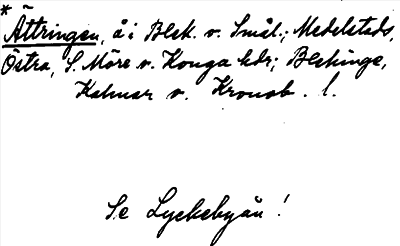 *
Ättringen, å i Blek. o. Smål.; Medelstads,
Östra, S. Möre o. Konga hdr; Blekinge,
Kalmar o. Kronob. l.
Se Lyckebyån!